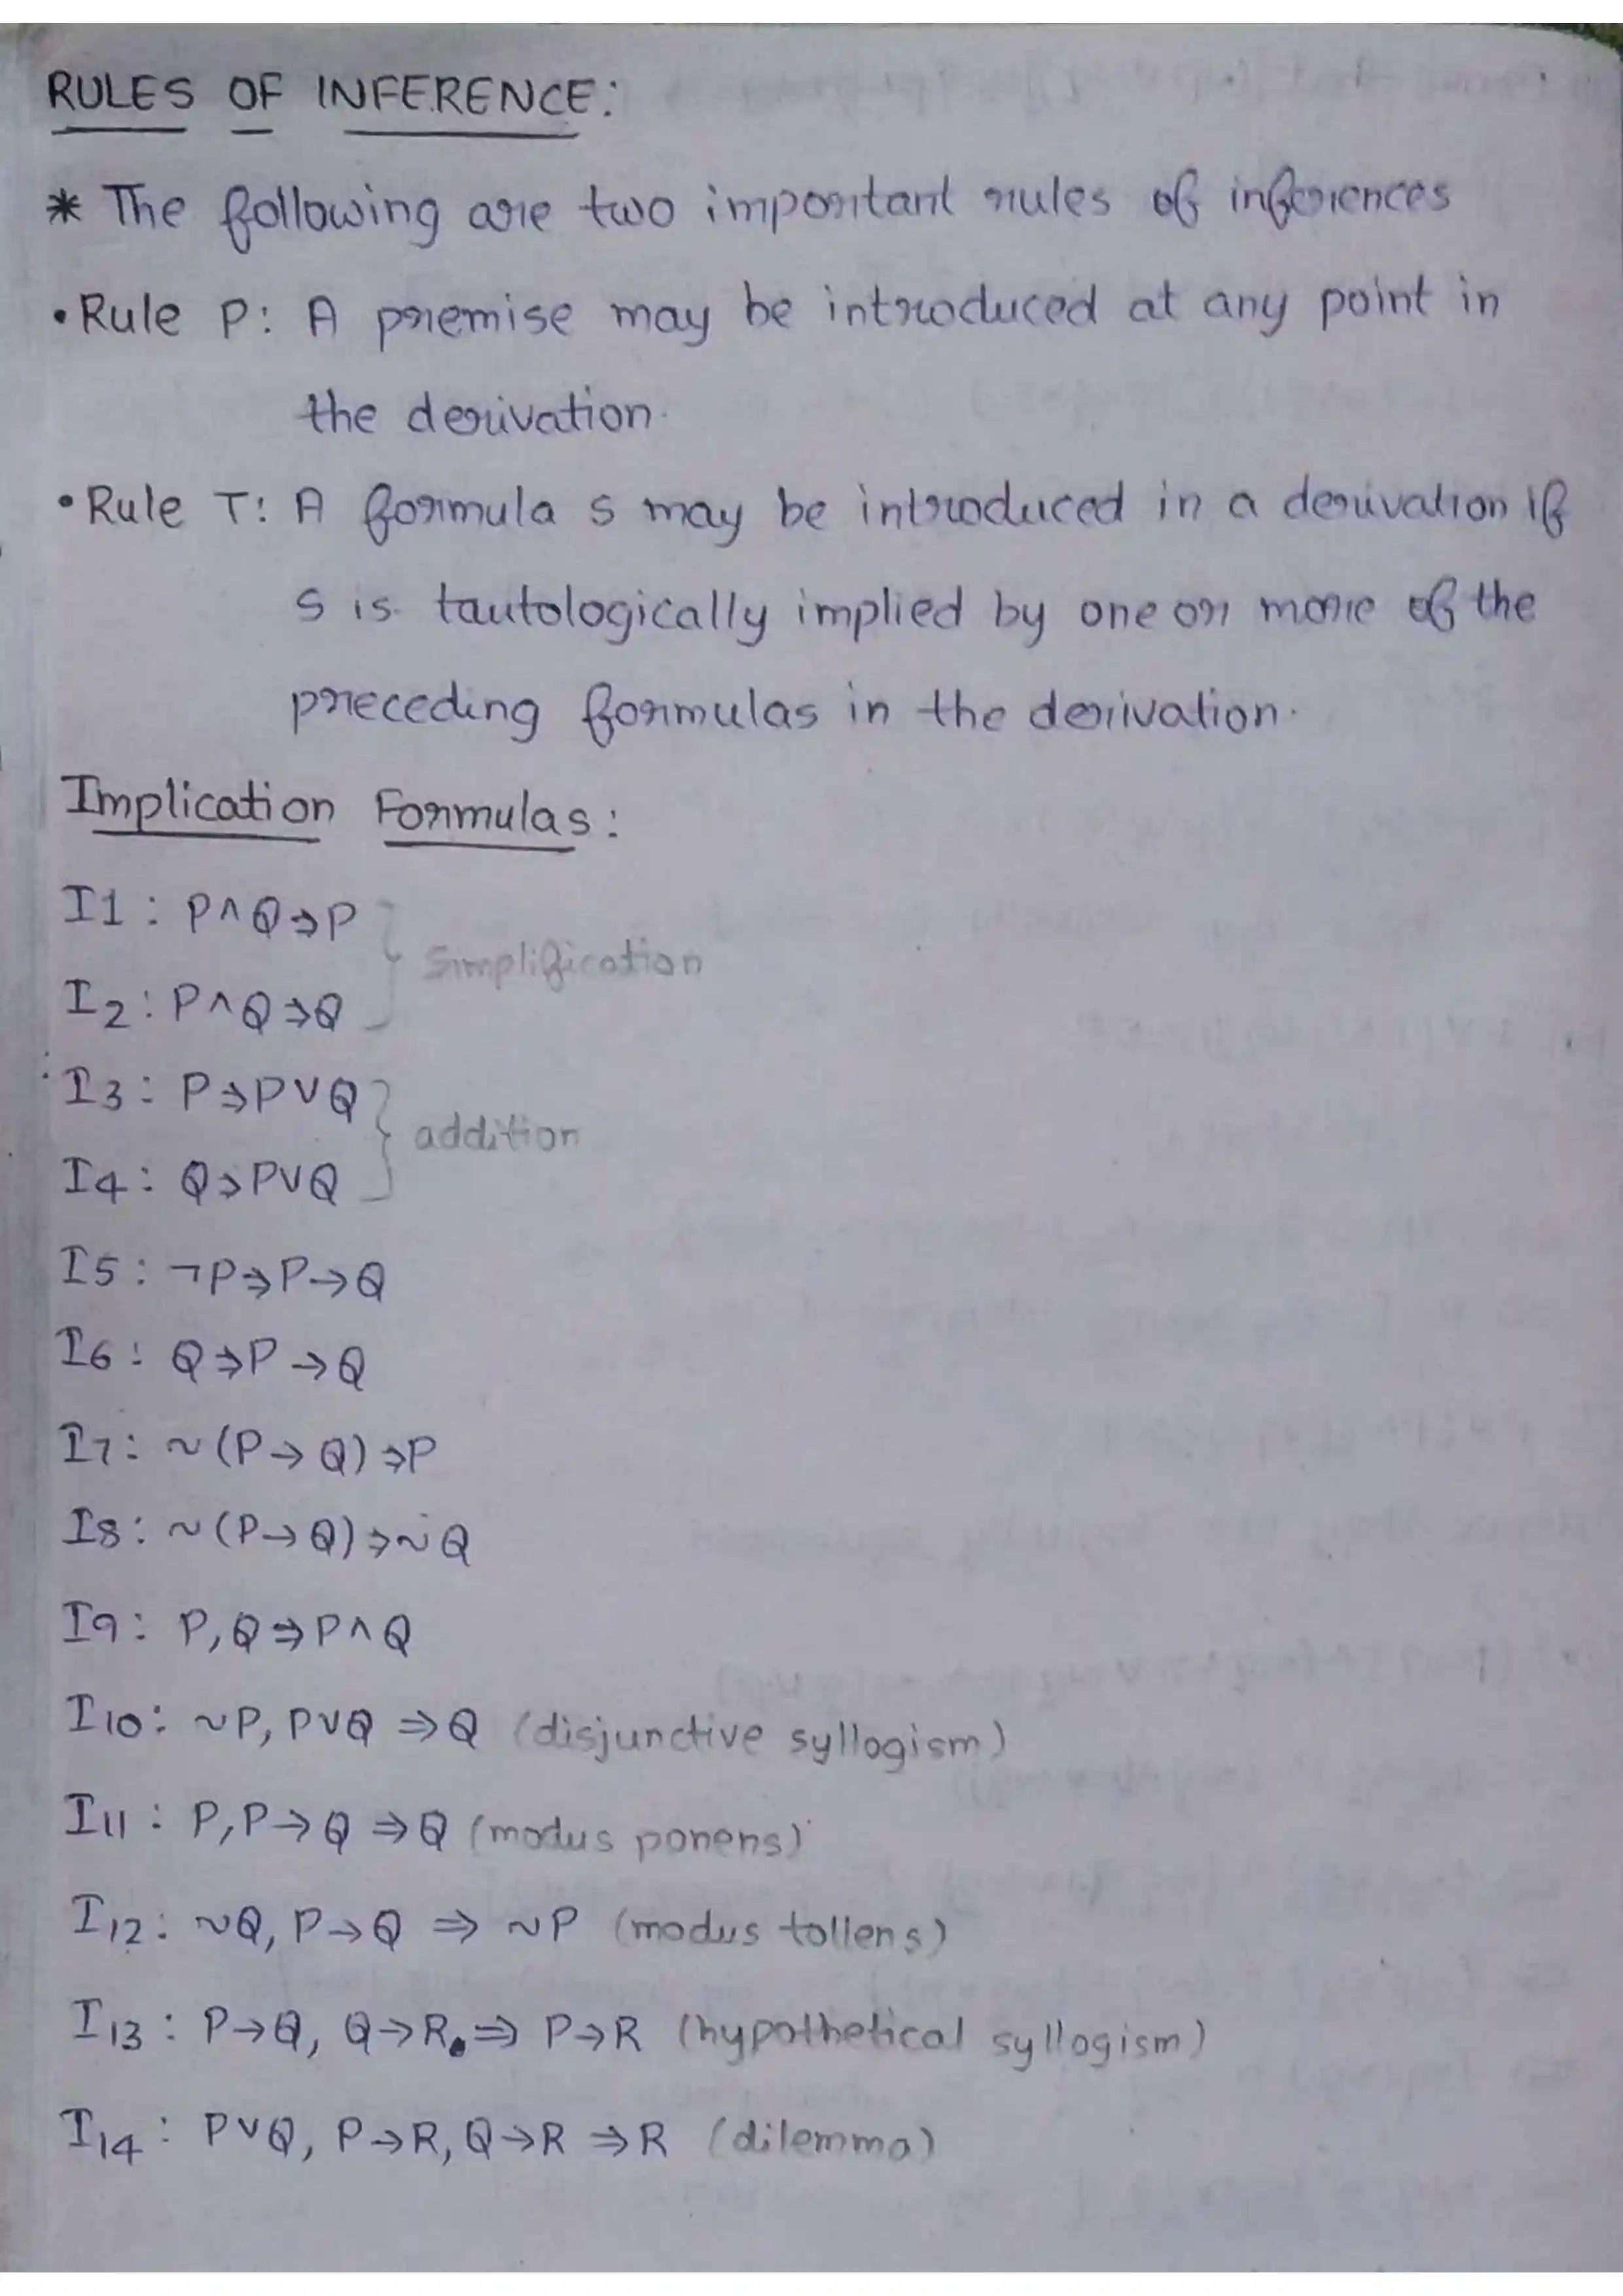 RULES OF INFERENCE:
* The following are two important rules of inferences
• Rule P: A premise may be introduced at any point in
the derivation.
• Rule T: A formula S may be introduced in a derivation if
S is tautologically implied by one or more of the
preceding formulas in the derivation.
Implication Formulas:
I1: P∧Q⇒P
Simplification
I2: P∧Q⇒Q
I3: P⇒P∨Q
addition
I4: Q⇒P∨Q
I5: ¬P⇒P→Q
I6: Q⇒P→Q
I7: ~(P→Q)⇒P
I8: ~(P→Q)⇒~Q
I9: P,Q⇒P∧Q
I10: ~P, P∨Q ⇒Q (disjunctive syllogism)
I11: P,P→Q ⇒Q (modus ponens)
I12: ~Q, P→Q ⇒ ~P (modus tollens)
I13: P→Q, Q→R ⇒ P→R (hypothetical syllogism)
I14: P∨Q, P→R, Q→R ⇒R (dilemma)